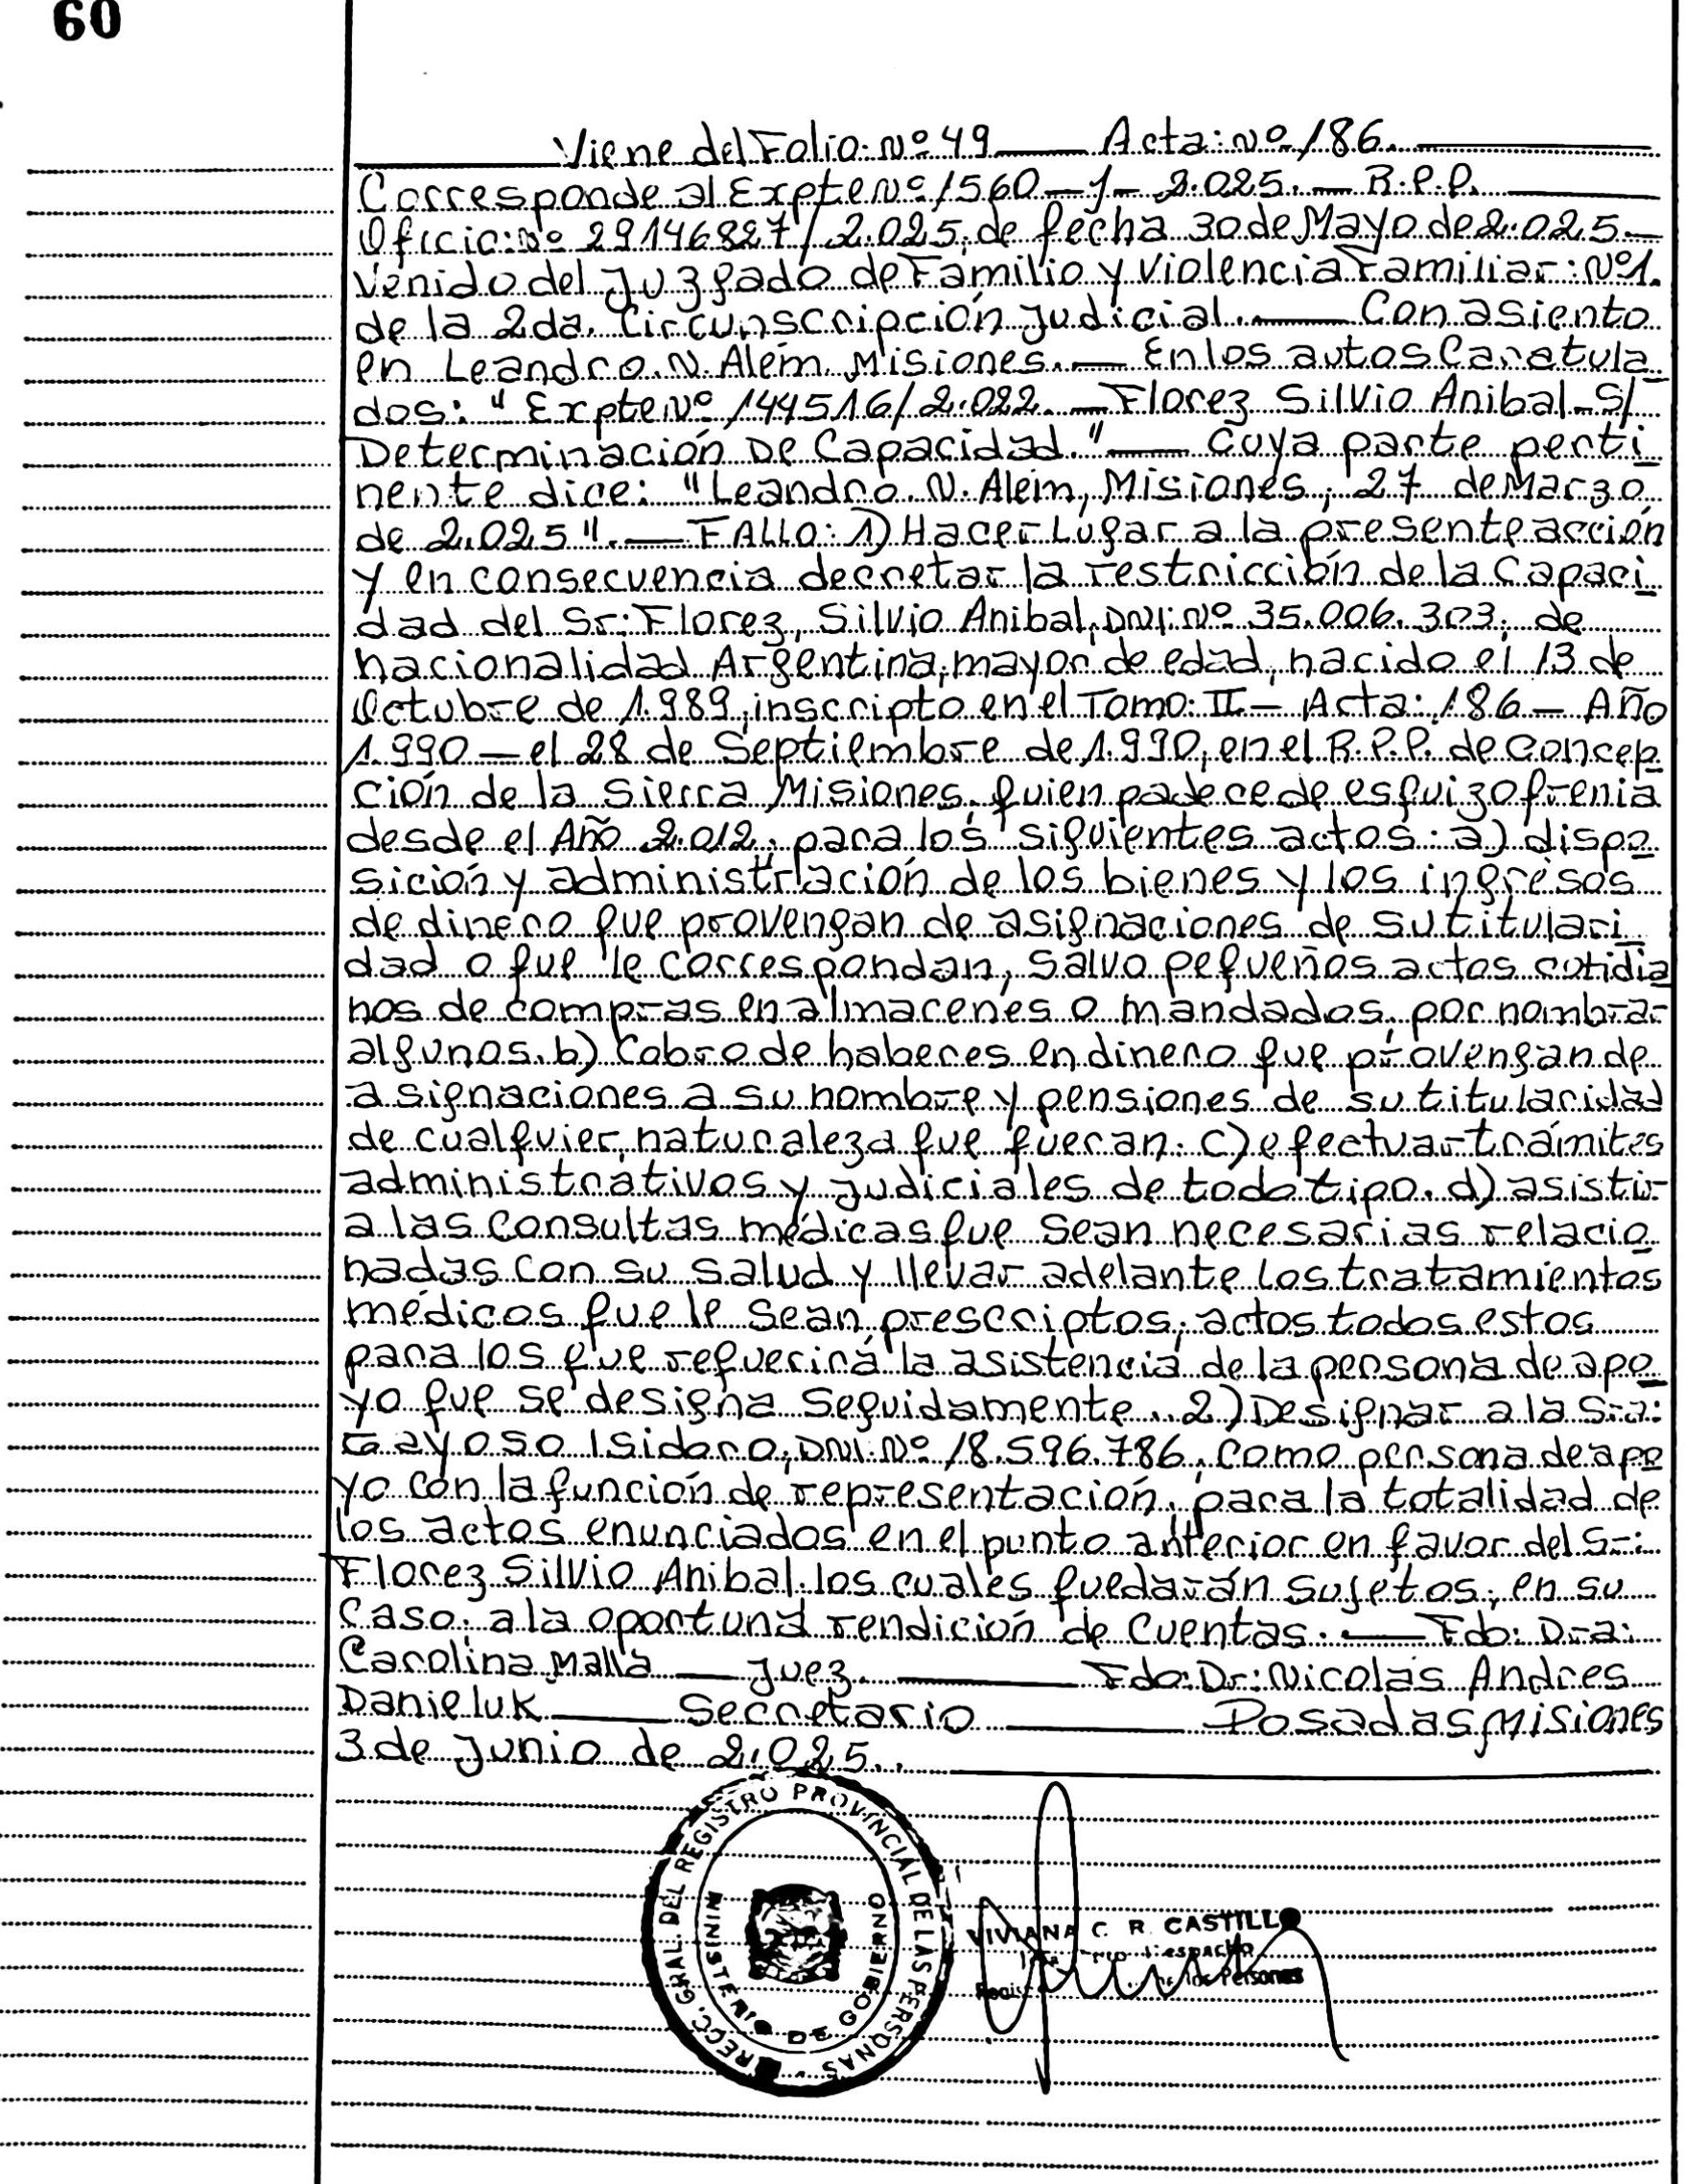 60
Viene del Folio: Nº 49 — Acta: Nº 186. —
Corresponde al Expte Nº 1560 - J - 2.025. — R.P.P. —
Oficio: Nº 29146827/2.025, de fecha 30 de Mayo de 2.025 —
Venido del Juzgado de Familio y Violencia Familiar: Nº 1.
de la 2da. Circunscripción Judicial. — Con asiento
en Leandro. N. Alem Misiones. — En los autos Caratula
dos: "Expte Nº 144516/2.022. — Florez Silvio Anibal - S/
Determinación De Capacidad." — Cuya parte perti
nente dice: "Leandro N. Alem, Misiones, 27 de Marzo
de 2.025". — FALLO: 1) Hacer Lugar a la presente acción
y en consecuencia decretar la restricción de la Capaci
dad del Sr: Florez, Silvio Anibal, DNI: Nº 35.006.303, de
nacionalidad Argentina, mayor de edad, nacido el 13 de
Octubre de 1.989, inscripto en el Tomo: II - Acta: 186 - Año
1.990 - el 28 de Septiembre de 1.990, en el R.P.P. de Concep
ción de la Sierra Misiones, quien padece de esquizofrenia
desde el Año 2.012, para los siguientes actos: a) dispo
sición y administración de los bienes y los ingresos
de dinero que provengan de asignaciones de su titulari
dad o que le correspondan, salvo pequeños actos cotidia
nos de compras en almacenes o mandados, por nombrar
algunos. b) Cobro de haberes en dinero que provengan de
asignaciones a su nombre y pensiones de su titularidad
de cualquier naturaleza que fueran. c) efectuar trámites
administrativos y judiciales de todo tipo. d) asistir
a las consultas médicas que sean necesarias relacio
nadas con su salud y llevar adelante los tratamientos
médicos que le sean prescriptos, actos todos estos
para los que requerirá la asistencia de la persona de apo
yo que se designa seguidamente.. 2) Designar a la Sra:
Gayoso Isidoro, DNI: Nº 18.596.786, como persona de apo
yo con la función de representación, para la totalidad de
los actos enunciados en el punto anterior en favor del Sr:
Florez Silvio Anibal, los cuales quedarán sujetos, en su
caso, a la oportuna rendición de Cuentas. — Fdo: Dra:
Carolina Malla — Juez — Fdo: Dr: Nicolás Andres
Danieluk — Secretario — Posadas Misiones
3 de Junio de 2.025. —
DIRECC. GRAL. DEL REGISTRO PROVINCIAL DE LAS PERSONAS
MINISTERIO DE GOBIERNO
VIVIANA C. R. CASTILLO
Despacho
de las Personas